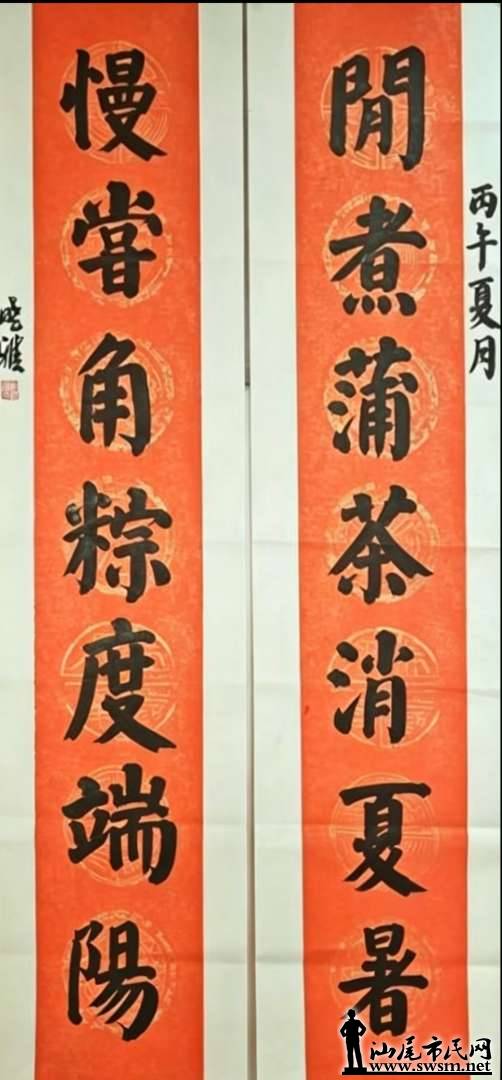 丙午夏月
閒煮蒲茶消夏暑
慢嘗角粽度端陽
汕尾市民网
www.swsm.net